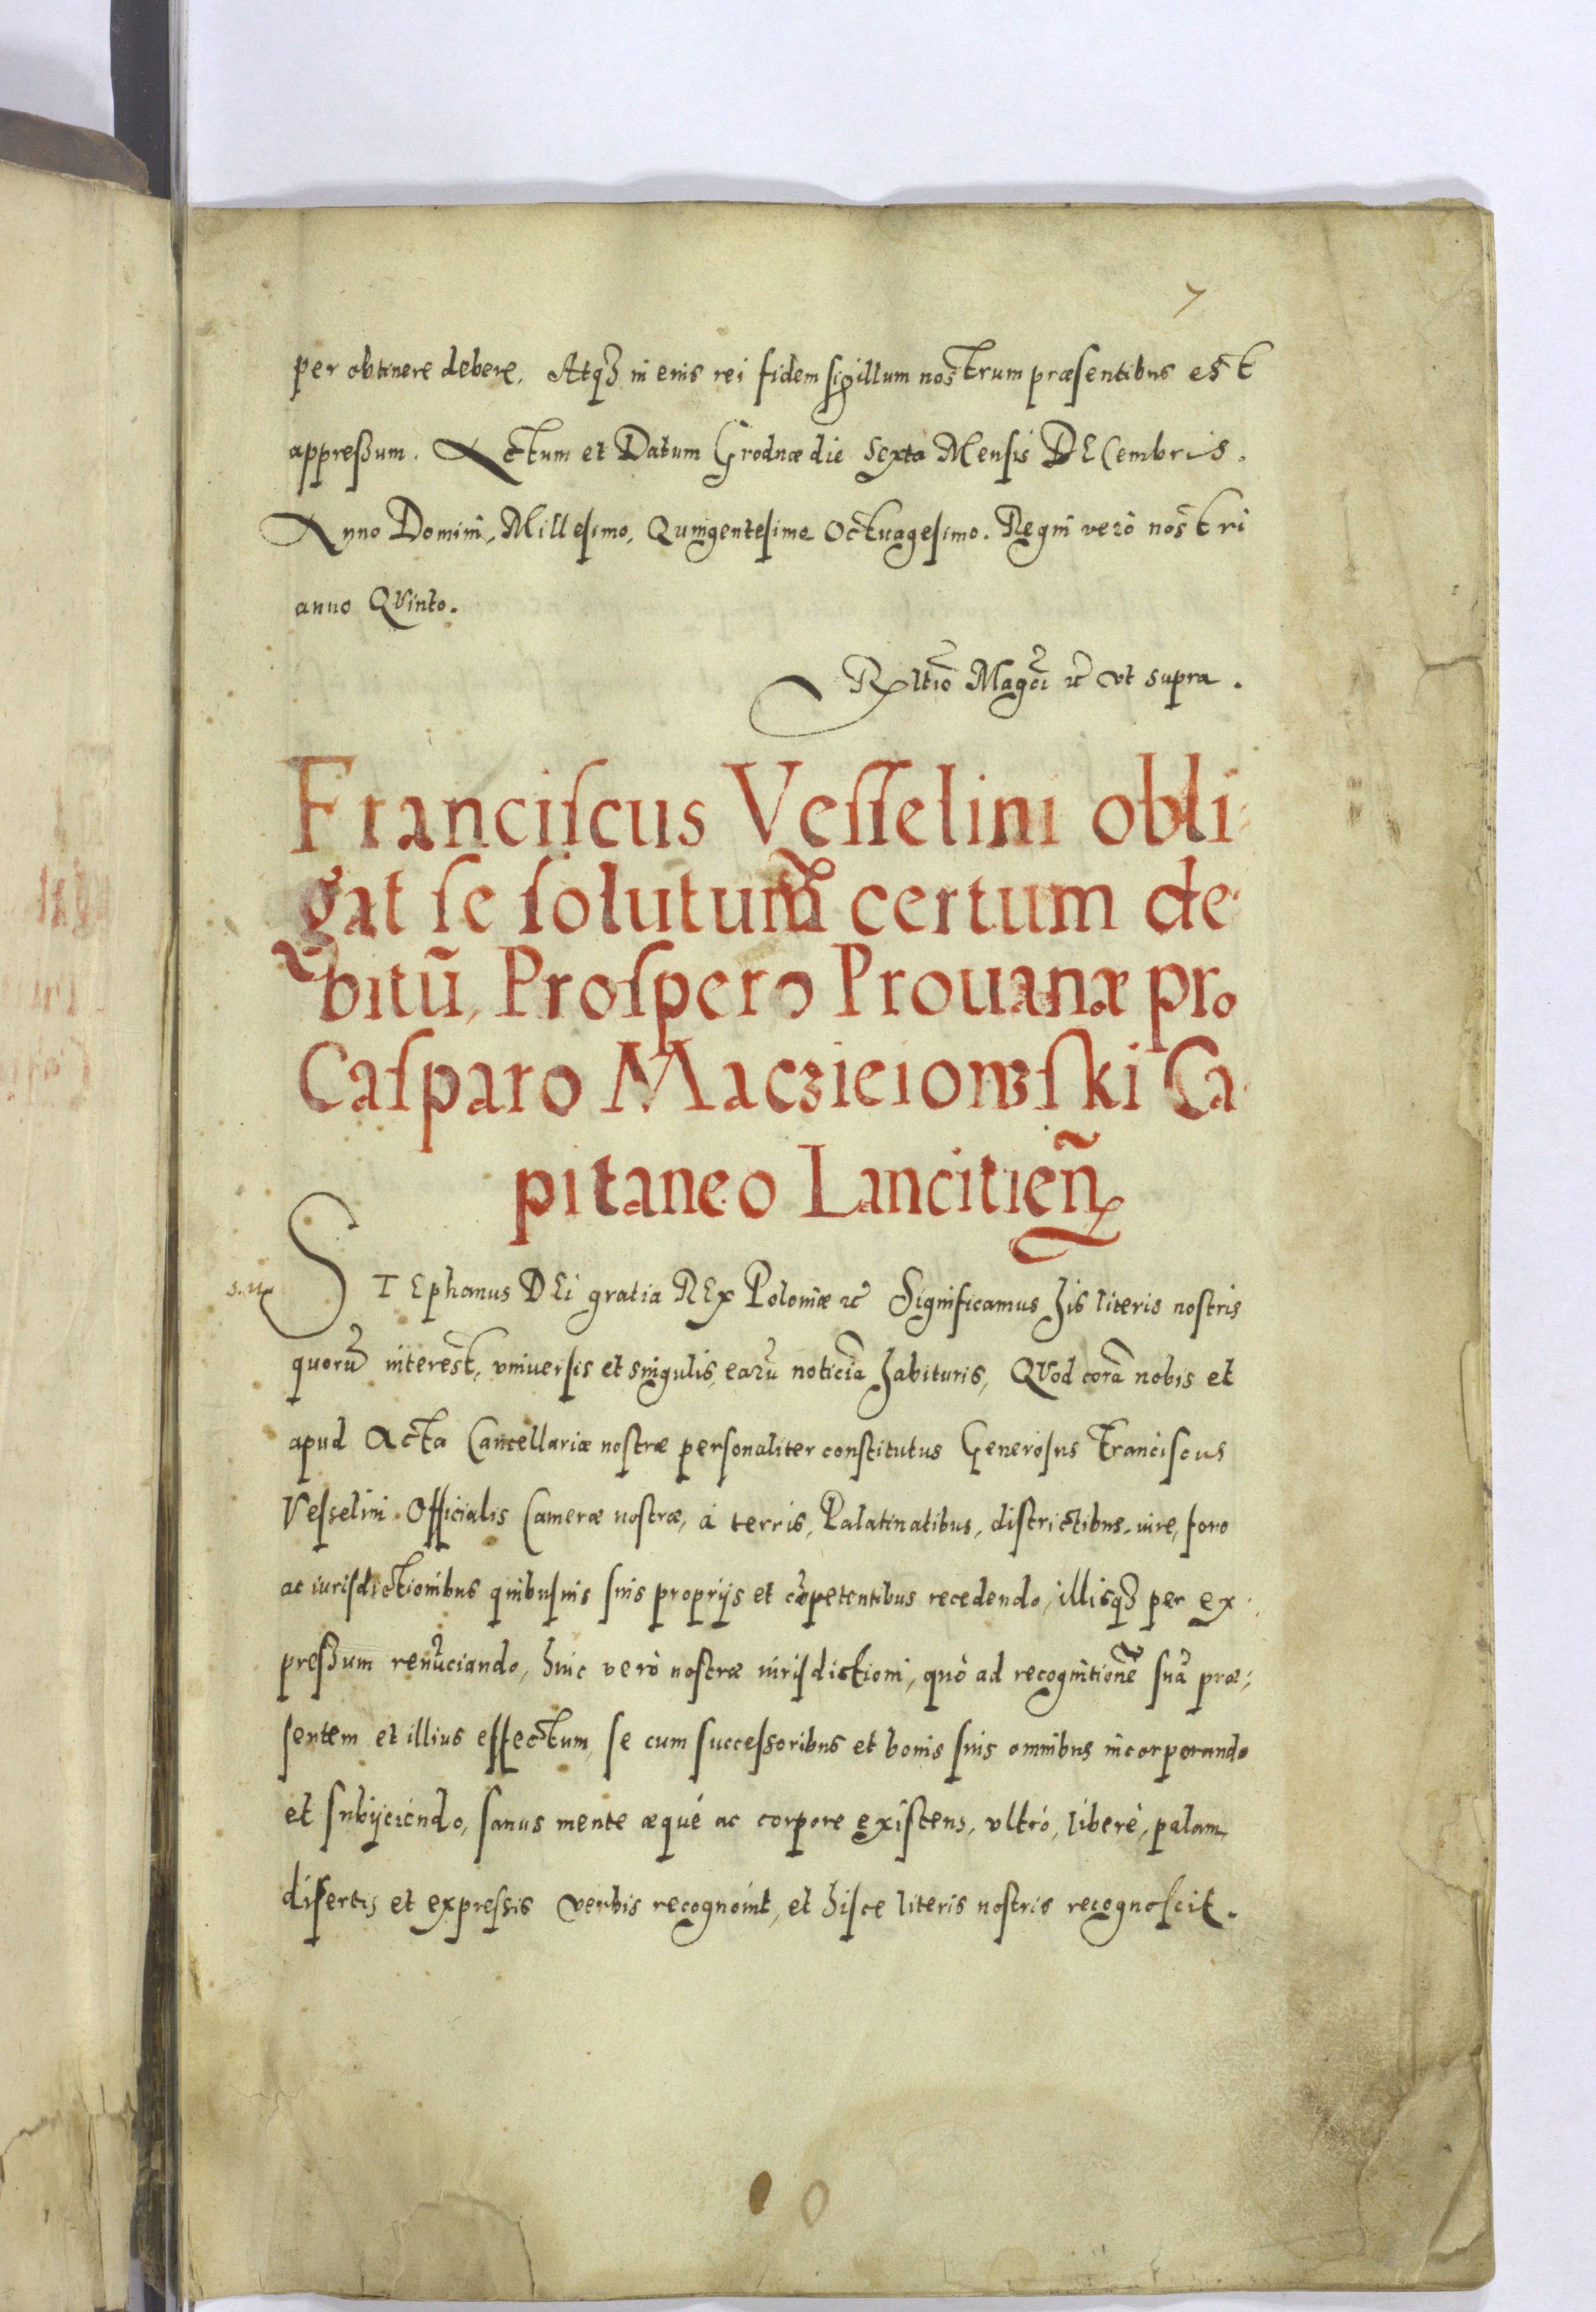 7
per obtinere debere. Atq₃ in eius rei fidem sigillum nostrum præsentibus est
appreßum. Actum et Datum Grodnæ die Sexta Mensis DECembris.
Anno Domini, Millesimo, Quingentesimo Octuagesimo. Regni verò nostri
anno QVinto.
Rltio Magci ꝛc vt supra.
Franciſcus Veſſelini obli-
gat ſe ſolutum̃ certum de-
bitũ, Proſpero Prouanæ pro
Caſparo Maczieiowſki Ca-
pitaneo Lancitien̄
STEphanus DEi gratia REx Poloniæ ꝛc Significamus his literis nostris
quorũ interest, vniuersis et singulis, earũ noticiã habituris, QVod corã nobis et
apud Acta Cancellariæ nostræ personaliter constitutus Generosus Franciscus
Vesselini Officialis Cameræ nostræ, à terris, Palatinatibus, districtibus, iure, foro
ac iurisdictionibus quibusuis suis proprijs et cõpetentibus recedendo, illisq₃ per ex-
preßum renũciando, huic verò nostræ iurisdictioni, quò ad recognitionẽ suã præ-
sentem et illius effectum, se cum successoribus et bonis suis omnibus incorporando
et subijciendo, sanus mente æquè ac corpore existens, vltrò, liberè, palam,
disertis et expressis verbis recognouit, et hisce literis nostris recognoscit.